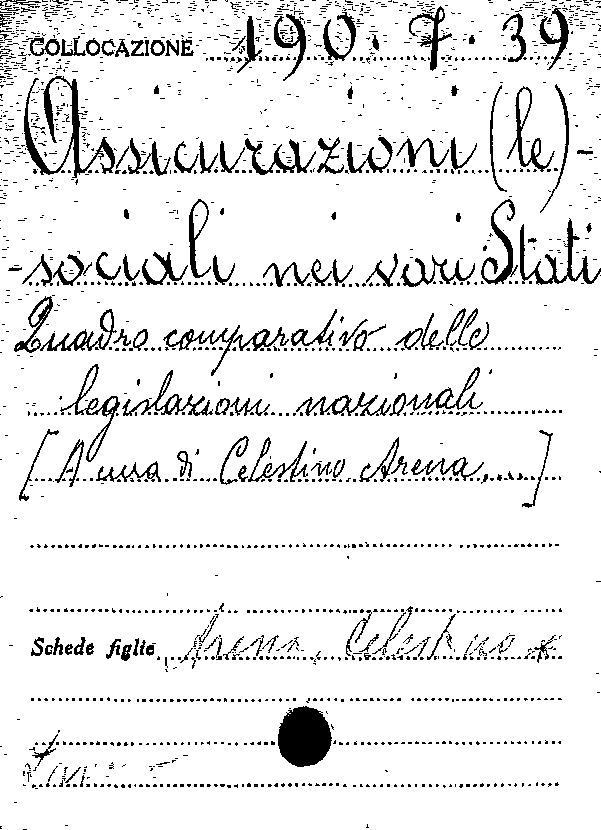 COLLOCAZIONE 190.7.39
(Assicurazioni (le)-
-sociali nei vari Stati
Quadro comparativo delle
legislazioni nazionali
[A cura di Celestino Arena,...]
Schede figlie Arena, Celestino